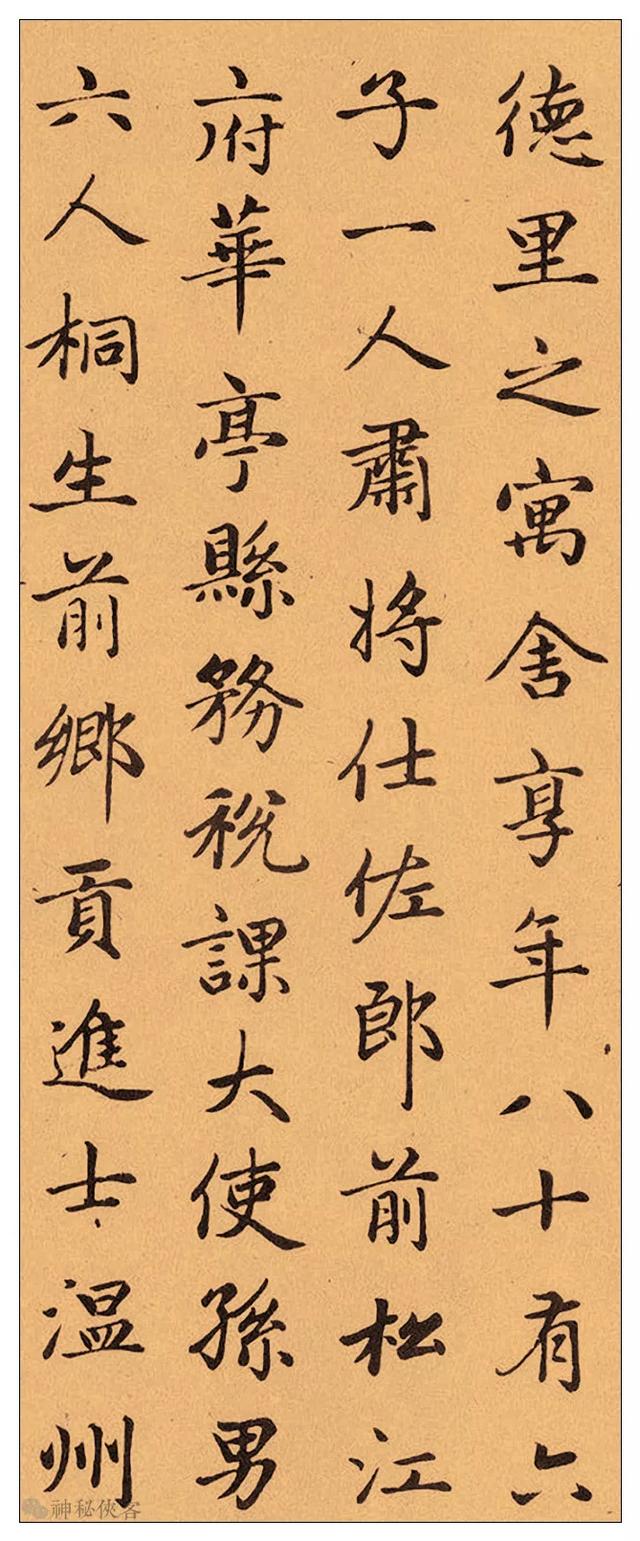 德里之寓舍享年八十有六
子一人肅将仕佐郎前松江
府華亭縣務税課大使孫男
六人桐生前鄉貢進士温州
神秘俠客